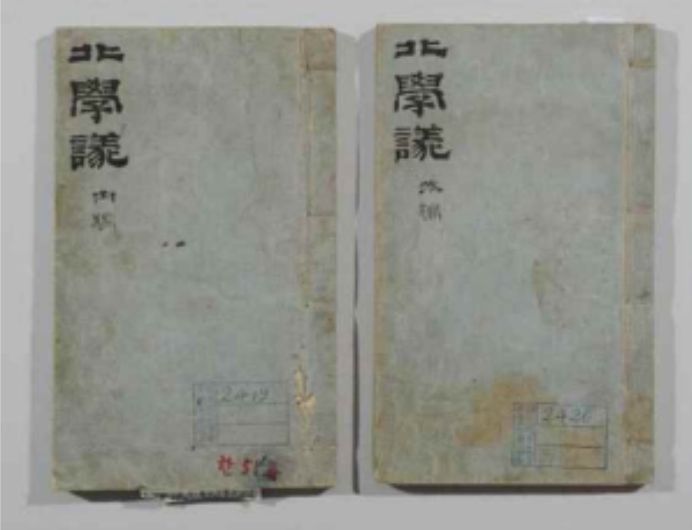 北學議
內編
2419
北學議
外編